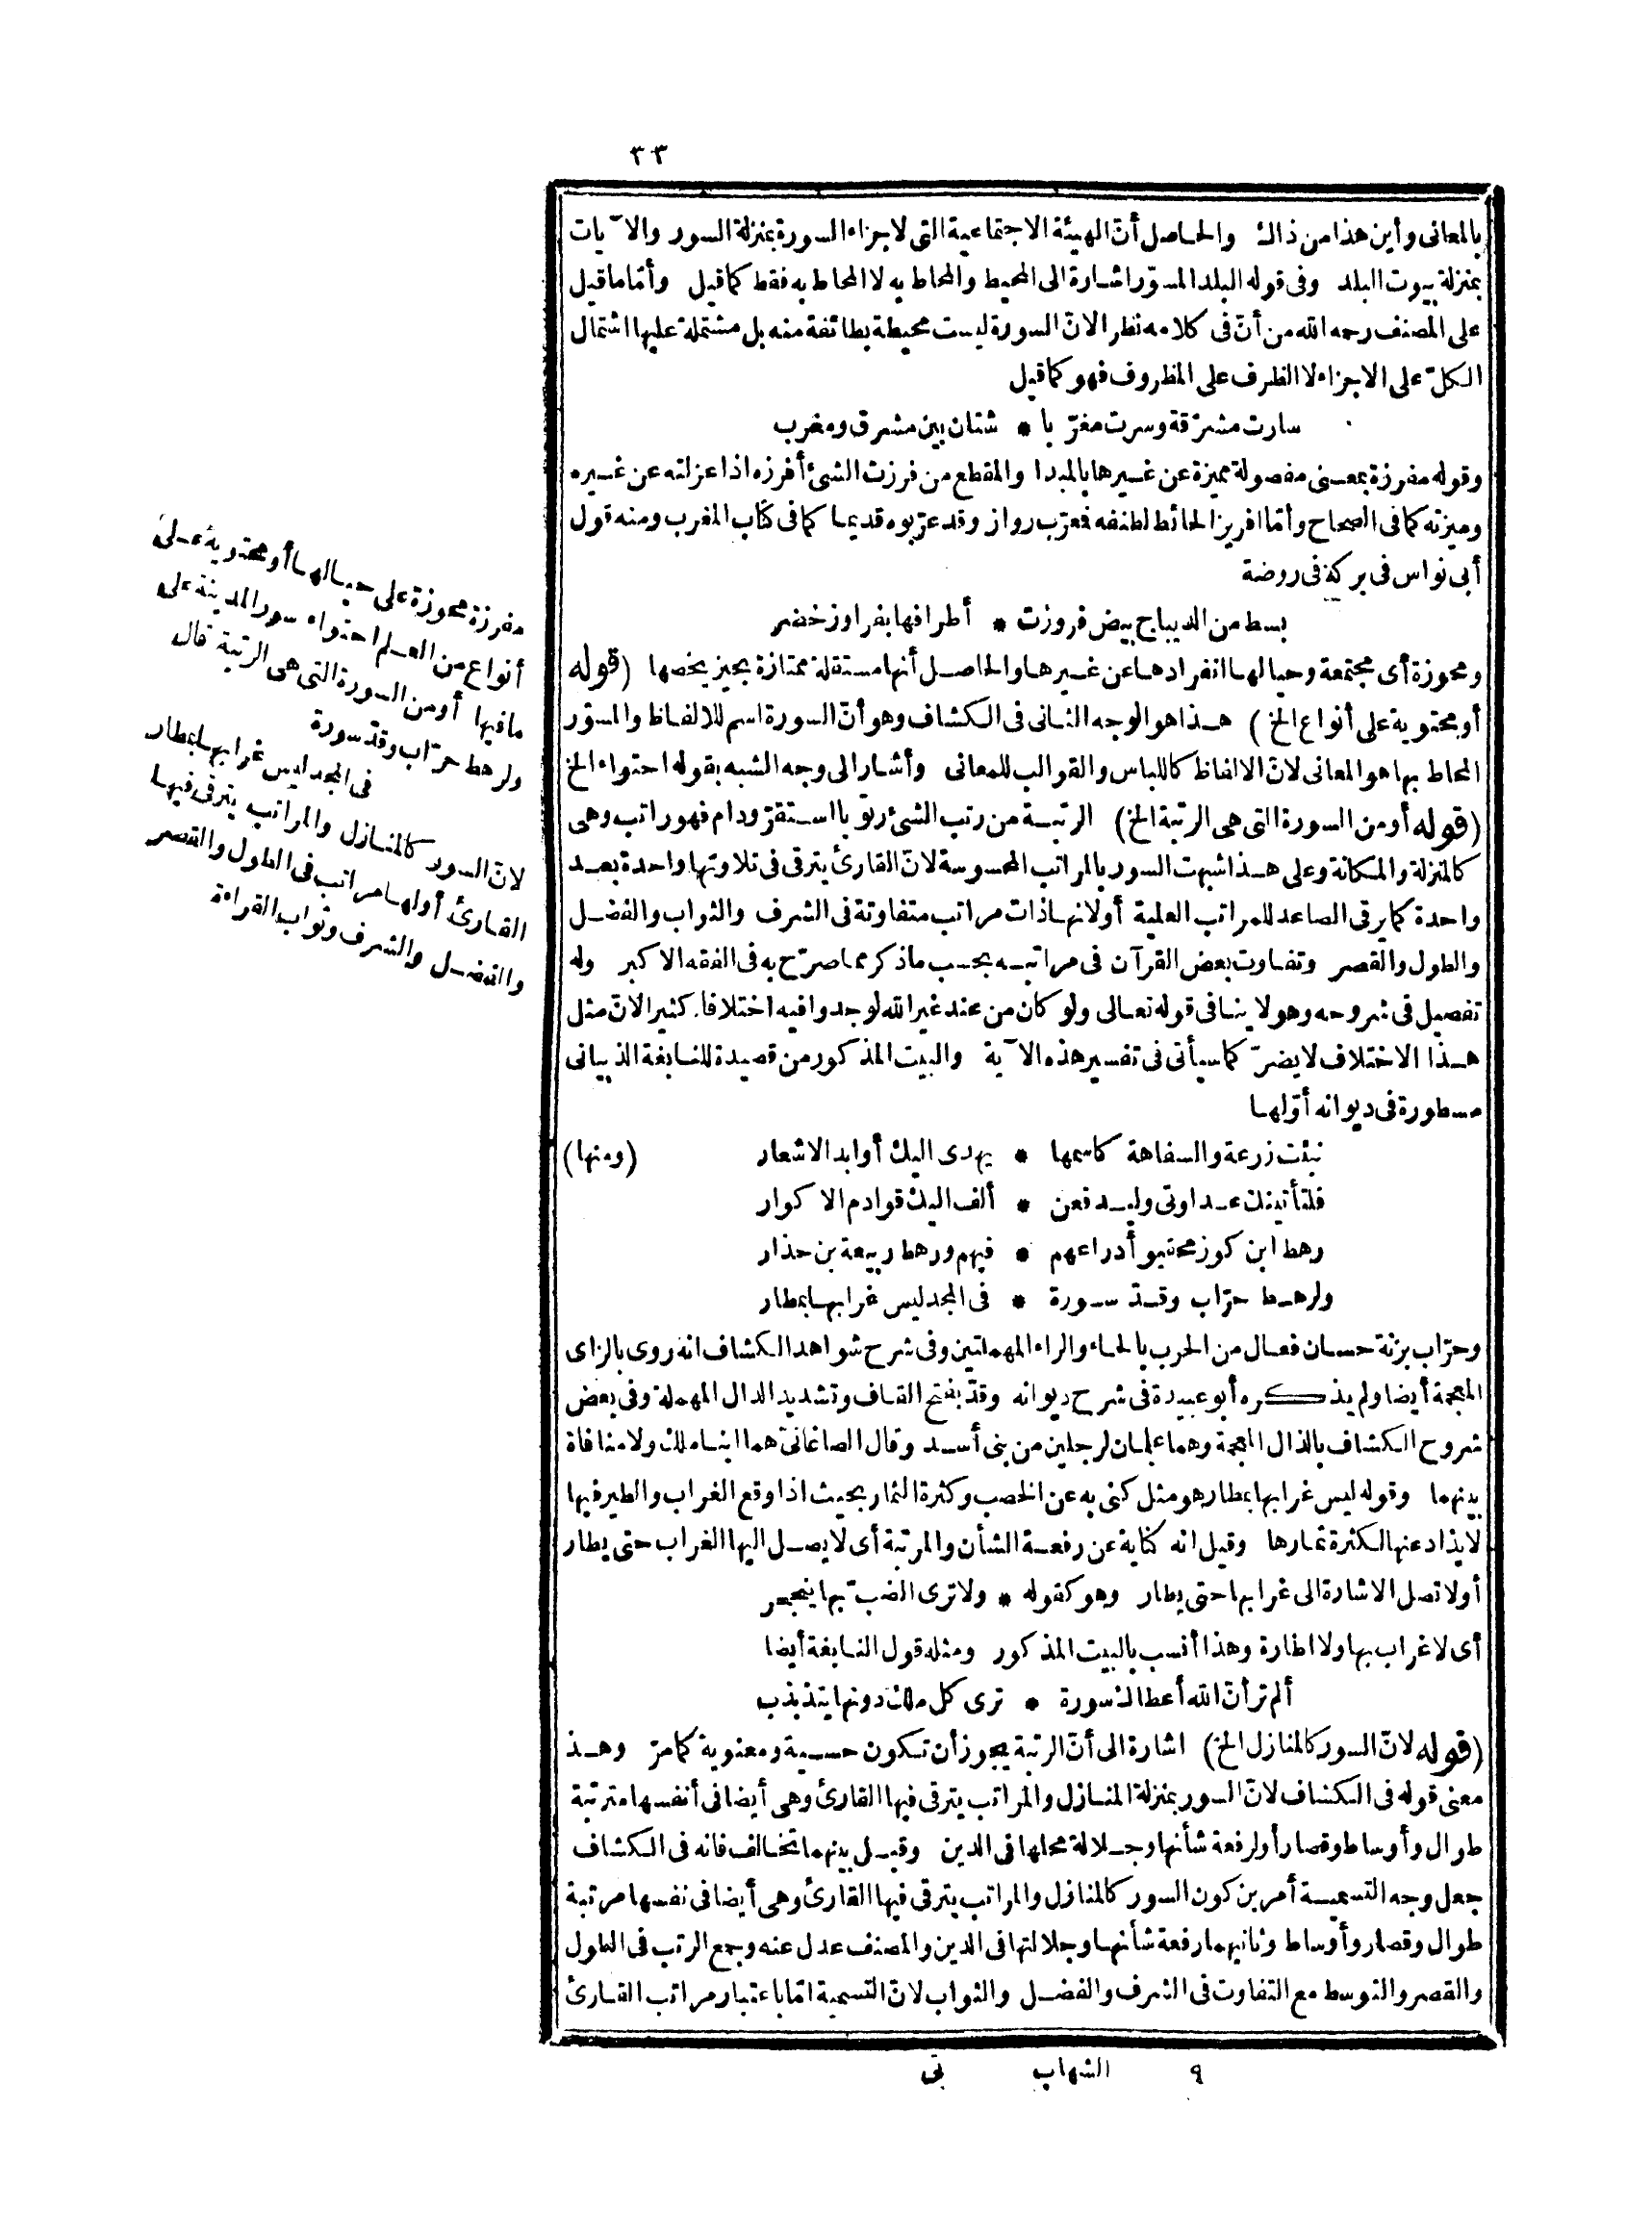 ٣٣
بالمعانى وأين هذا من ذاك والحاصل أنّ الهيئة الاجتماعية التى لاجزاء السورة بمنزلة السور والآيات
بمنزلة بيوت البلد وفى قوله البلد المسوّر اشارة الى المحيط والمحاط به لا المحاط به فقط كما قيل وأمّا ما قيل
على المصنف رحمه الله من أنّ فى كلامه نظر الانّ السورة ليست محيطة بطائفة منه بل مشتملة عليها اشتمال
الكلّ على الاجزاء لا الظرف على المظروف فهو كما قيل
سارت مشرّقة وسرت مغرّبا * شتان بين مشرق ومغرب
وقوله مفرزة بمعنى مفصولة مميزة عن غيرها بالمبدا والمقطع من فرزت الشئ أفرزه اذا عزلته عن غيره
وميزته كما فى الصحاح وأمّا افريز الحائط لطنفه فعرّب رواز وقد عرّبوه قديما كما فى كتاب المغرب ومنه قول
أبى نواس فى بركة فى روضة
بسط من الديباج بيض فروزت * أطرافها بفراوز خضر
ومحوزة أى مجتمعة وحيالها انفرادها عن غيرها والحاصل أنها مستقلة ممتازة بحيز يخصها (قوله
أو محتوية على أنواع الخ) هذا هو الوجه الثانى فى الكشاف وهو أنّ السورة اسم للالفاظ والمسوّر
المحاط بها هو المعانى لانّ الالفاظ كاللباس والقوالب للمعانى وأشار الى وجه الشبه بقوله احتواء الخ
(قوله أو من السورة التى هى الرتبة الخ) الرتبة من رتب الشئ رتوبا استقرّ ودام فهو راتب وهى
كالمنزلة والمكانة وعلى هذا شبهت السور بالمراتب المحسوسة لانّ القارئ يترقى فى تلاوتها واحدة بعد
واحدة كما يرقى الصاعد للمراتب العلية أو لانها ذات مراتب متفاوتة فى الشرف والثواب والفضل
والطول والقصر وتفاوت بعض القرآن فى مراتبه بحسب ما ذكر مما صرّح به فى الفقه الاكبر وله
تفصيل فى شروحه وهو لا ينافى قوله تعالى ولو كان من عند غير الله لوجدوا فيه اختلافا كثيرا لانّ مثل
هذا الاختلاف لا يضرّ كما سيأتى فى تفسير هذه الآية والبيت المذكور من قصيدة للنابغة الذبيانى
مسطورة فى ديوانه أوّلها
نبئت زرعة والسفاهة كاسمها * يهدى اليك أوابد الاشعار (ومنها)
فلتأتينك عداوتى وليدفعن * ألف اليك قوادم الاكوار
رهط ابن كوز محتبو أدراعهم * فيهم ورهط ربيعة بن حذار
ولرهط حرّاب وقدّ سورة * فى المجد ليس غرابها بمطار
وحرّاب بزنة حسان فعال من الحرب بالحاء والراء المهملتين وفى شرح شواهد الكشاف انه روى بالزاى
المعجمة أيضا ولم يذكره أبو عبيدة فى شرح ديوانه وقدّ بفتح القاف وتشديد الدال المهملة وفى بعض
شروح الكشاف بالذال المعجمة وهما علمان لرجلين من بنى أسد وقال الصاغانىّ هما ابنا ملك ولا منافاة
بينهما وقوله ليس غرابها بمطار هو مثل كنى به عن الخصب وكثرة الثمار بحيث اذا وقع الغراب والطير فيها
لا يذاد عنها لكثرة ثمارها وقيل انه كناية عن رفعة الشأن والمرتبة أى لا يصل اليها الغراب حتى يطار
أو لا تصل الاشارة الى غرابها حتى يطار وهو كقوله * ولا ترى الضبّ بها ينجحر
أى لا غراب بها ولا اطارة وهذا أنسب بالبيت المذكور ومثله قول النابغة أيضا
ألم تر أنّ الله أعطاك سورة * ترى كل ملك دونها يتذبذب
(قوله لانّ السور كالمنازل الخ) اشارة الى أنّ الرتبة يجوز أن تكون حسية ومعنوية كما مرّ وهذ
معنى قوله فى الكشاف لانّ السور بمنزلة المنازل والمراتب يترقى فيها القارئ وهى أيضا فى أنفسها مترتبة
طوال وأوساط وقصار أو لرفعة شأنها وجلالة محلها فى الدين وقيل بينهما تخالف فانه فى الكشاف
جعل وجه التسمية أمرين كون السور كالمنازل والمراتب يترقى فيها القارئ وهى أيضا فى نفسها مرتبة
طوال وقصار وأوساط وثانيهما رفعة شأنها وجلالتها فى الدين والمصنف عدل عنه وجمع الرتب فى الطول
والقصر والتوسط مع التفاوت فى الشرف والفضل والثواب لانّ التسمية امّا باعتبار مراتب القارئ
٩ الشهاب نى
مفرزة محوزة على حيالها أو محتوية على
أنواع من العلم احتواء سور المدينة على
ما فيها أو من السورة التى هى الرتبة قال
ولرهط حرّاب وقدّ سورة
فى المجد ليس غرابها بمطار
لانّ السور كالمنازل والمراتب يترقى فيها
القارئ أولها مراتب فى الطول والقصر
والفضل والشرف وثواب القراءة